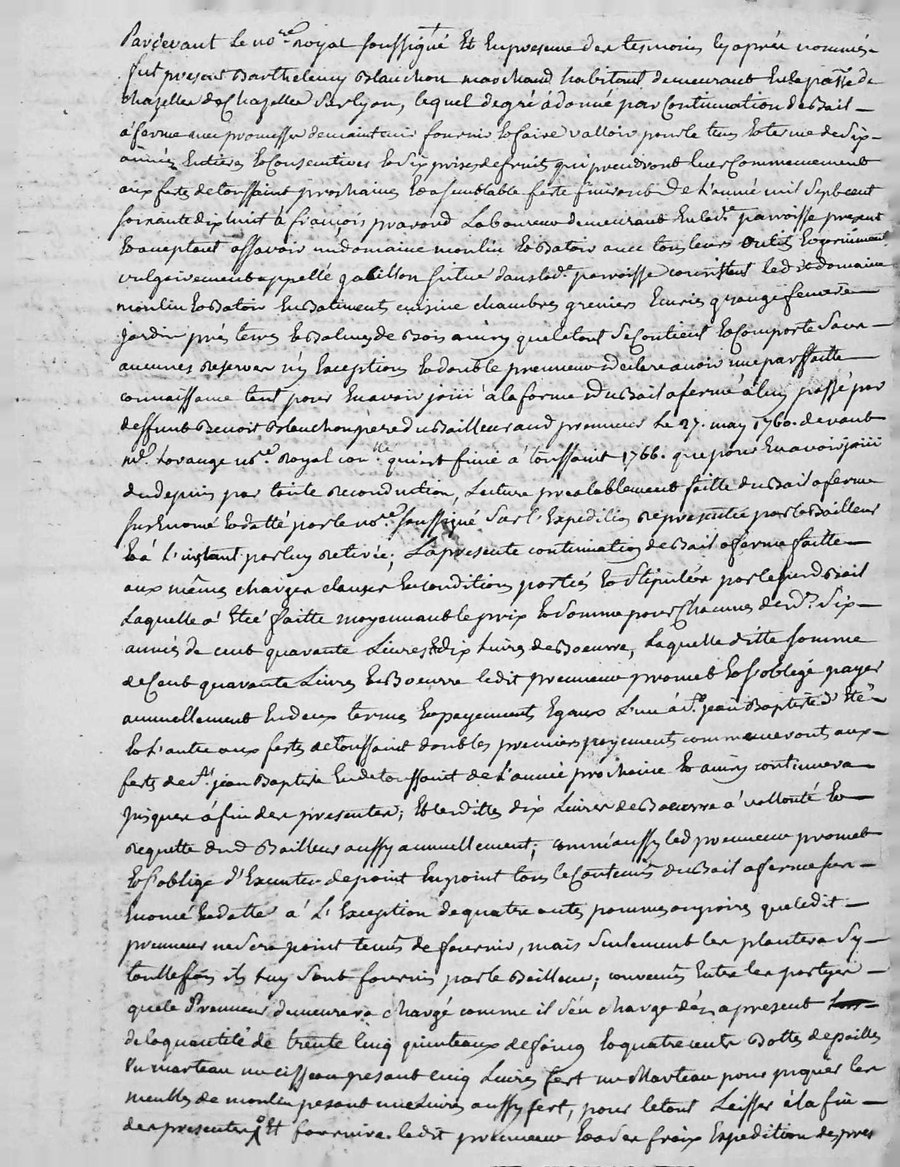 Pardevant Le no.re royal soussigné Et En presence des tesmoins Cy après nommés
fut present Barthelemy Blanchon marchand habitant demeurant En la par.sse de
chazelles de Chazelles sur Lyon, lequel degré à donné par Continuation de Bail
à ferme avec promesse de maintenir fournir Et faire valloir pour le tems Et terme de six
années Entieres Et Consecutives Et six prises de fruits qui prendront leur Commencement
aux fetes de toussaint prochaines Et a semblable fete finiront De L'année mil sept cent
soixante dix huit à françois pravond Laboureur demeurant En lad.e parroisse present
Et acceptant assavoir un domaine moulin Et Batoir avec tous leurs outils Et
vulgairement appellé situé dans lad.e parroisse consistant led.t domaine
moulin Et Batoir En Batiments cuisine chambres greniers Ecuries grange feniere
Jardin prés terres Et Balmes de Bois ainsy que le tout se Contient Et Comporte sans
aucunes Reserves n'y Exceptions Et dont le preneur Declare avoir une parfaite
connaissance tant pour En avoir joüi à la forme du Bail a ferme à luy passé par
deffunt Benoit Blanchon pere du Bailleur aud preneur Le 27. may 1760. devant
M.e Lorange no.e Royal qui est finie à toussaint 1766. que pour En avoir joüi
du depuis par tacite reconduction, Lecture prealablement faitte du Bail a ferme
sus Enoncé Et datté par le no.re soussigné sur l'Expedition representée par le Bailleur
Et à L'instant par luy retirée; La presente continuation de Bail a ferme faitte
aux mêmes charges clauses Et conditions portées Et stipulées par le susd Bail
Laquelle a Eté faitte moyennant le prix Et somme pour Chacunes desd.s six
années de cent quarante Livres & dix Livres de Boeurre, Laquelle ditte somme
de Cent quarante Livres Et Boeurre ledit preneur promet Et s'oblige payer
annuellement En deux termes Et payements Egaux L'un à s.t jean Baptiste d'Eté
Et L'autre aux fetes de toussaint doubles premiers payements commenceront aux
fetes de s.t jean Baptiste Et de toussaint de L'année prochaine Et ainsy continuera
jusques à fin des presentes; Et lesdittes dix Livres de Boeurre à vollonté Et
requette dud Bailleur aussy annuellement; comme aussy led preneur promet
Et s'oblige d'Executer de point En point tous le Contenus du Bail a ferme sus
Enoncé Et datté à L'Exception de quatre antes pommes ou poires que ledit
preneur ne sera point tenus de fournir, mais seulement les plantera sy
touttefois ils luy sont fournis par le Bailleur; convenus Entre les partyes
que le Preneur demeurera chargé comme il s'en charge dès apresent
de la quantité de trente Cinq quinteaux de foins Et quatre cents Bottes de pailles
Un marteau un cisseau pesant cinq Livres fert un Marteau pour piquer les
meulles de moulin pesant une Livres aussy fert, pour le tout Laisser à la fin
des presentes Et fournira ledit preneur Et a ses fraix Expedition des pres